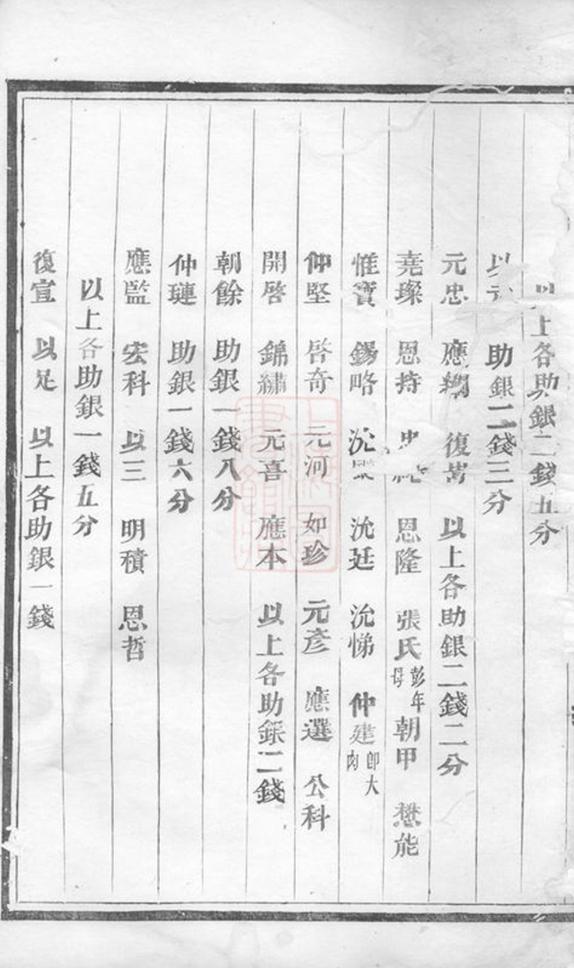 以上各助銀二錢五分
以 助銀二錢三分
元忠 應翱 復嵩 以上各助銀二錢二分
堯璨 恩持 忠 恩隆 張氏彭年母 朝甲 懋能
惟寶 錫略 沇 沇廷 沇悌 仲建即大肉
仲堅 啓奇 元河 如珍 元彥 應選 公科
開啓 錦繡 元喜 應本 以上各助銀二錢
朝餘 助銀一錢八分
仲璉 助銀一錢六分
應監 宏科 以三 明積 恩哲
以上各助銀一錢五分
復宣 以足 以上各助銀一錢